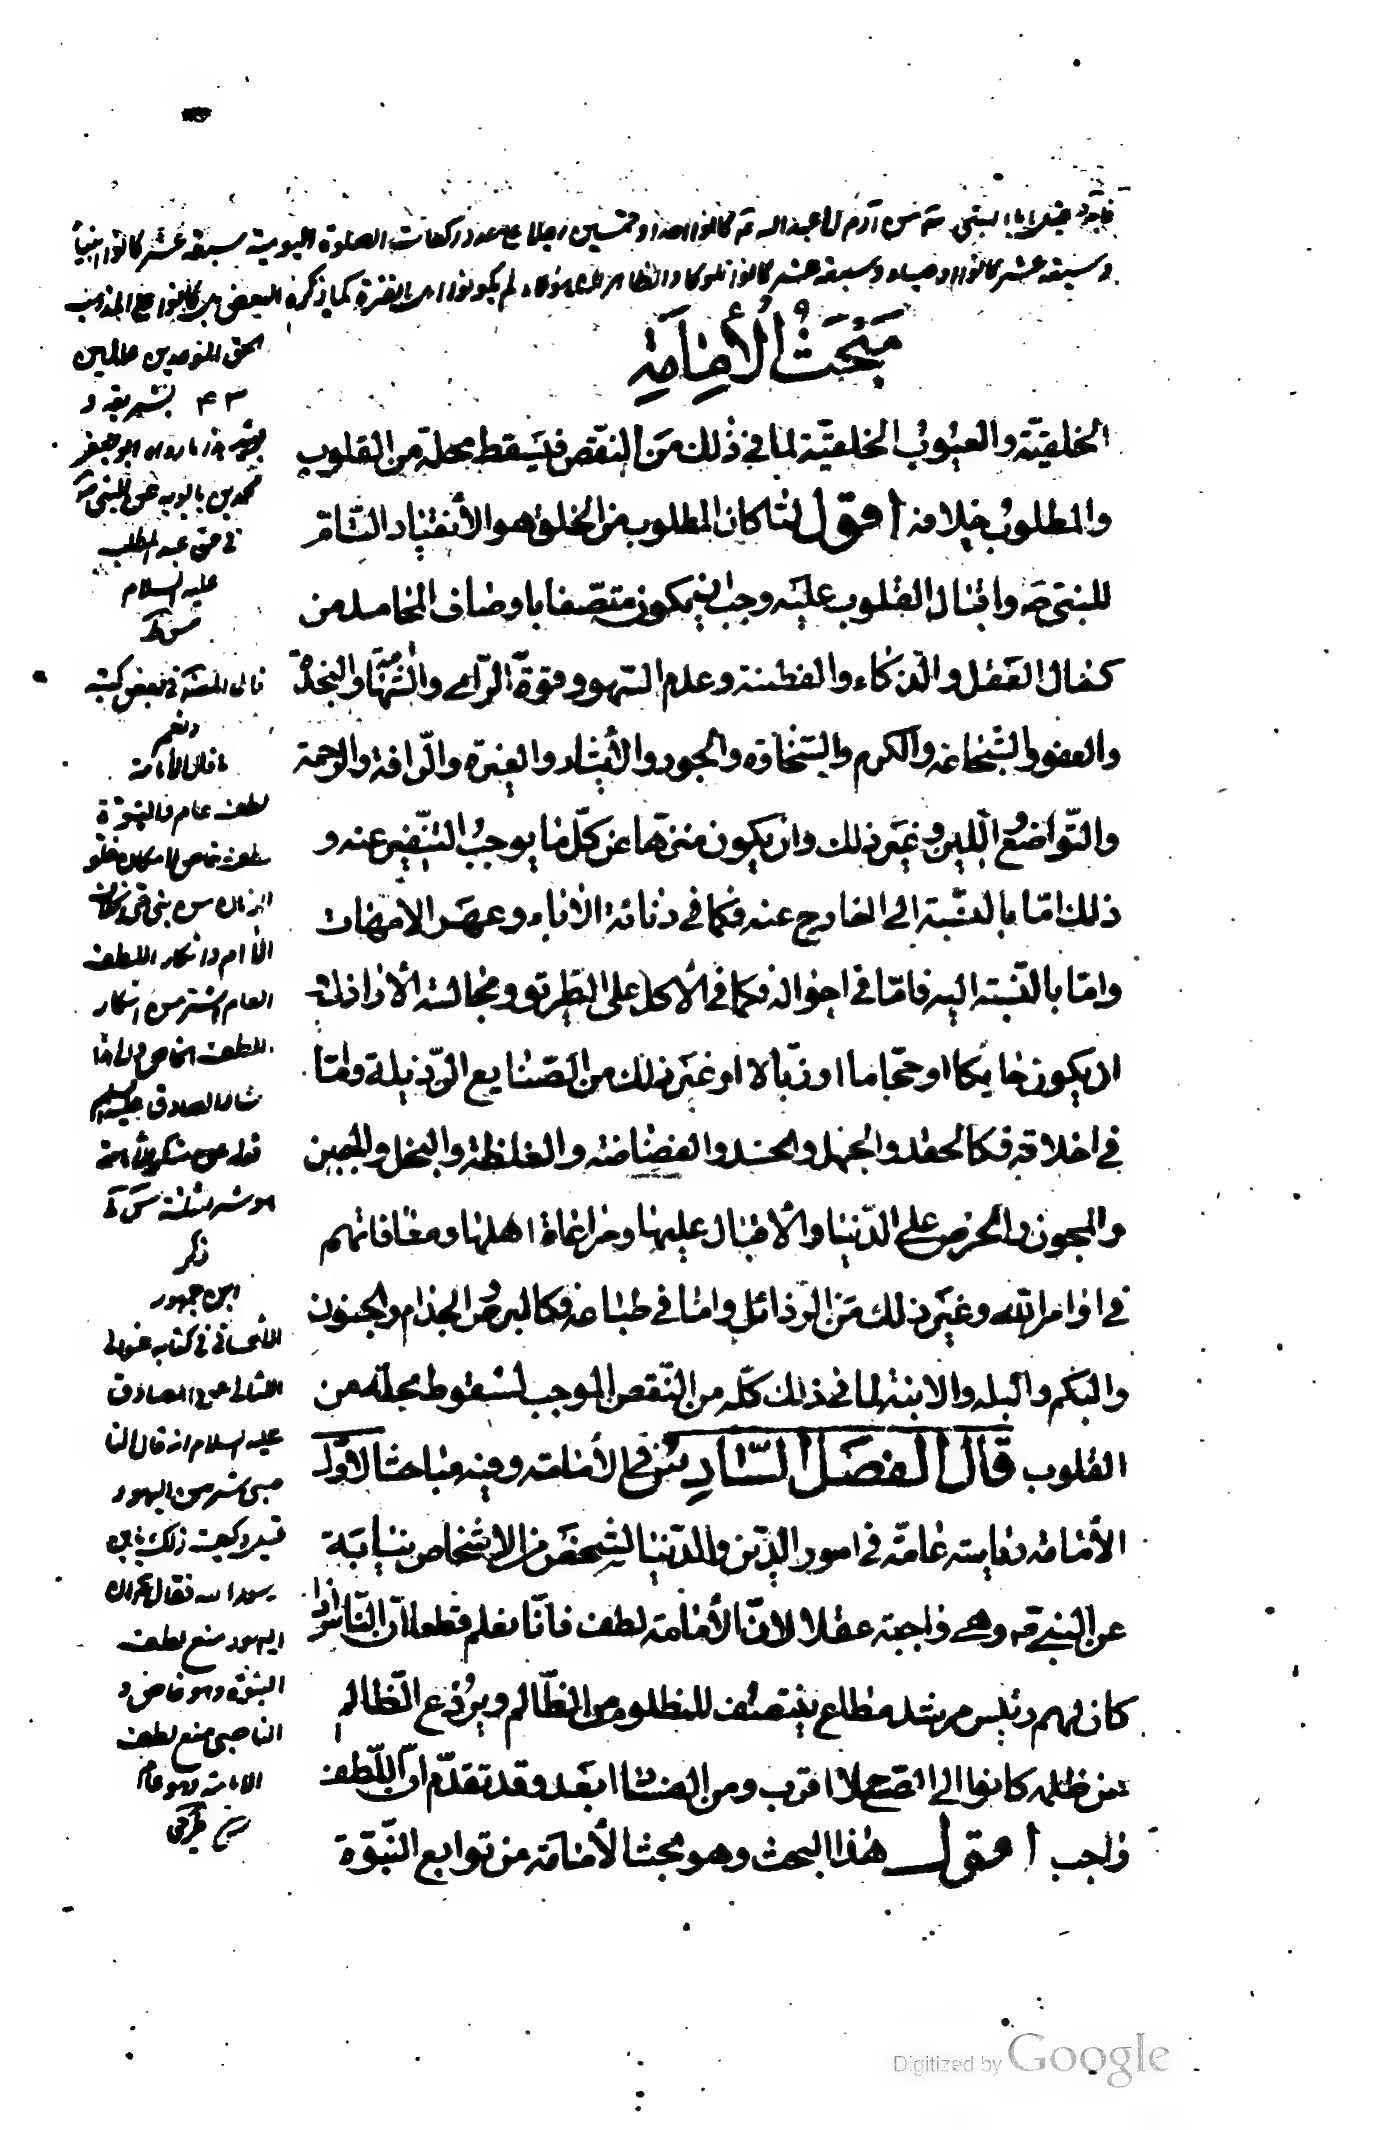 فائدة اباء النبي ص من آدم الى عبد الله ثم كانوا احدا وخمسين رجلا على عدد ركعات الصلوة اليومية سبعة عشر كانوا انبياء
وسبعة عشر كانوا اوصياء وسبعة عشر كانوا ملوكا والظاهر لم يكونوا كما ذكره البعض بل كانوا على المذهب
مَبْحَثُ الْأِمَامَةِ
الخلقيّة والعيوب الخلقيّة لما في ذلك من النقص فيسقط محلّه من القلوب
والمطلوب خلافه اقول لمّا كان المطلوب من الخلق هو الأنقياد التّام
للنبي ص واقبال القلوب عليه وجب ان يكون متّصفا باوصاف المحامد من
كمال العقل والذّكاء والفطنة وعدم السّهو وقوّة الرّاى والشّهامة والنجدة
والعفو والشّجاعة والكرم والسّخاوة والجود والأيثار والغيرة والرّافة والرحمة
والتّواضع واللّين وغير ذلك وان يكون منزّها عن كلّ ما يوجب التنّفير عنه و
ذلك امّا بالنّسبة الى الخارج عنه فكما في دنائة الاباء وعهر الامّهات
وامّا بالنّسبة اليه فامّا في احواله فكما في الأكل على الطّريق ومجالسة الأراذل و
ان يكون حايكا او حجّاما او زبّالا او غير ذلك من الصّنايع الرّذيلة وامّا
في اخلاقه فكالحقد والجهل والحسد والفضاضة والغلظة والبخل والجبن
والمجون والحرص على الدّنيا والأقبال عليها ومراعاة اهلها ومعافاتهم
في اوامر الله وغير ذلك من الرذائل وامّا في طباعه فكالبرص والجذام والجنون
والبكم والبله والابنة لما في ذلك كلّه من النّقص الموجب لسقوط محلّه من
القلوب قال الفصل السّادس في الأمامة وفيه مباحث الاوّل
الأمامة رياسة عامّة في امور الدّين والدّنيا لشخص من الاشخاص بنيابة
عن النبي ص وهي واجبة عقلا لانّ الأمامة لطف فانّا نعلم قطعا انّ النّاس اذا
كان لهم رئيس مرشد مطاع ينتصف للمظلوم من الظّالم ويردع الظّالم
عن ظلمه كانوا الى الصّلاح اقرب ومن الفساد ابعد وقد تقدّم انّ اللّطف
واجب اقول هذا البحث وهو بحث الأمامة من توابع النّبوّة
الحق الموحدين عاملين
بشريعة و
محمد بن بابويه عن النبي ص
في حق عبد المطلب
عليه السلام
قال المصنف في بعض كتبه
ونعم
ما قال الأمامة
لطف عام والنبوّة
لطف خاص لامكان خلو
الزمان من نبي حي
الأمام وانكار اللطف
العام اشر من انكار
اللطف الخاص والى هذا
اشار الصادق عليه السلام
بقوله عن منكر الأمامة
هو شر الثلثة
ذكر
ابن جمهور
الأحسائي في كتابه غوالي
اللئالي عن الصادق
عليه السلام انه قال الناصبي
شر من اليهود
قيل وكيف ذلك يابن
رسول الله فقال لان
اليهود منع لطف
النبوة وهو خاص و
الناصبي منع لطف
الامامة وهو عام
Digitized by Google